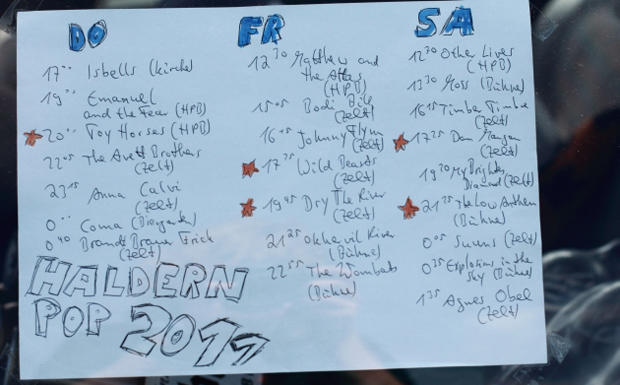 DO
17°° Isbells (Kirche)
19°° Emanuel
and the Fear (HPB)
20°° Toy Horses (HPB)
22⁰⁵ The Avett Brothers
(Zelt)
23¹⁵ Anna Calvi
(Zelt)
0°° Coma (Biergarten)
0⁴⁰ Brandt Brauer Frick
(Zelt)
FR
12³⁰ Matthew and
the Atlas
(HPB)
15⁰⁵ Bodi Bill
(Zelt)
16¹⁵ Johnny Flynn
(Zelt)
17³⁵ Wild Beasts
(Zelt)
19⁴⁵ Dry The River
(Zelt)
21²⁵ Okkervil River
(Bühne)
22⁵⁵ The Wombats
(Bühne)
SA
12³⁰ Other Lives
(HPB)
13³⁰ Moss (Bühne)
16¹⁵ Timber Timbre
(Zelt)
17³⁵ Dan Mangan
(Zelt)
19²⁰ My Brightest
Diamond (Zelt)
21²⁵ The Low Anthem
(Bühne)
0⁰⁵ Suuns (Zelt)
0³⁵ Explosions in the
Sky (Bühne)
1³⁵ Agnes Obel
(Zelt)
HALDERN
POP 2011